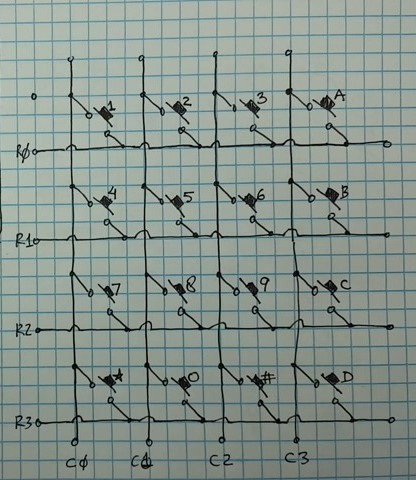 1 2 3 A
RØ
4 5 6 B
R1
7 8 9 C
R2
* 0 # D
R3
CØ C1 C2 C3